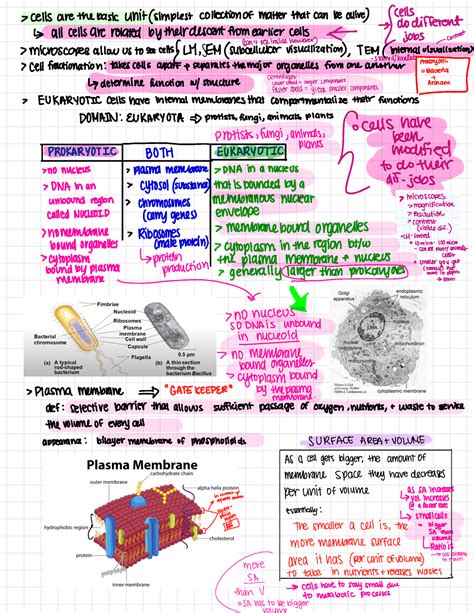 > cells are the basic unit (simplest collection of matter that can be alive)
↳ all cells are related by their descent from earlier cells
cells
do different
jobs
> microscopes allow us to see cells
LM, SEM (subcellular visualization), TEM (internal visualization)
> cell fractionation: takes cells apart + separates the major organelles from one another
↳ determine function w/ structure
Prokaryotes
Bacteria
+
Archaea
> EUKARYOTIC cells have internal membranes that compartmentalize their functions
DOMAIN: EUKARYOTA ⇒ protists, fungi, animals, plants
protists, fungi, animals,
plants
cells have
been
modified
to do their
dif. jobs
PROKARYOTIC
> no nucleus
> DNA in an
unbound region
called NUCLEOID
> no membrane
bound organelles
> cytoplasm
bound by plasma
membrane
BOTH
> plasma membrane
> cytosol (substance)
> chromosomes
(carry genes)
> Ribosomes
(make protein)
↳ protein
production
EUKARYOTIC
> DNA in a nucleus
that is bounded by a
membranous nuclear
envelope
> membrane bound organelles
> cytoplasm in the region btw
the plasma membrane + nucleus
> generally larger than prokaryotes
> microscopes
> magnification
> resolution
> contrast
> no nucleus
so DNA is unbound
in nucleoid
> no membrane
bound organelles
> cytoplasm bound
by the plasma
membrane
Fimbriae
Nucleoid
Ribosomes
Plasma
membrane
Bacterial
chromosome
Cell wall
Capsule
Flagella
0.5 µm
(a) A typical
rod-shaped
bacterium
(b) A thin section
through the
bacterium Bacillus
Golgi
apparatus
endoplasmic
reticulum
DNA
mitochondrion
cytoplasmic membrane
> Plasma membrane ⇒ "GATE KEEPER"
def: selective barrier that allows sufficient passage of oxygen, nutrients, + waste to service
the volume of every cell
appearance: bilayer membrane of phospholipids
Plasma Membrane
carbohydrate chain
outer membrane
alpha helix protein
hydrophobic region
cholesterol
protein
inner membrane
SURFACE AREA + VOLUME
As a cell gets bigger, the amount of
membrane space they have decreases
per unit of volume
essentially:
The smaller a cell is, the
more membrane surface
area it has (per unit of volume)
TO take in nutrients + release wastes
as SA increases
vol increases
@ a faster rate
small cells
bigger
SA than
volume
Ratio is
↳ cells have to stay small due
to metabolic processes
more
SA
than V
SA has to be bigger